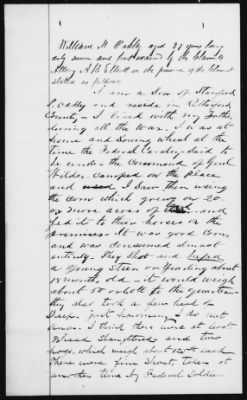 William N. Oakly aged 27 years being
duly sworn and
Atty A. B. Elliott in the presence of the Claimant
stated as follows
I am a Son of Stanford
Oakly and reside in Rutherford
County - I lived with my Father
during all the War. I was at
home and Sowing wheat at the
time the Federal Cavalry Said to
be under the Command of Genl
Wilder camped on the place
and I Saw them using
the corn which grew on 20
or more acres and
fed it to their horses on the
premises - It was good corn
and was consumed almost
entirely. They Shot and
a young Steer or yearling about
18 months old - it would weigh
about 50 lbs to the quarter -
they also took a few head of
Sheep
I think there were at least
head Slaughtered and two
hogs which weighed about each
These were fine Shoats, taken at
time by Federal Soldiers